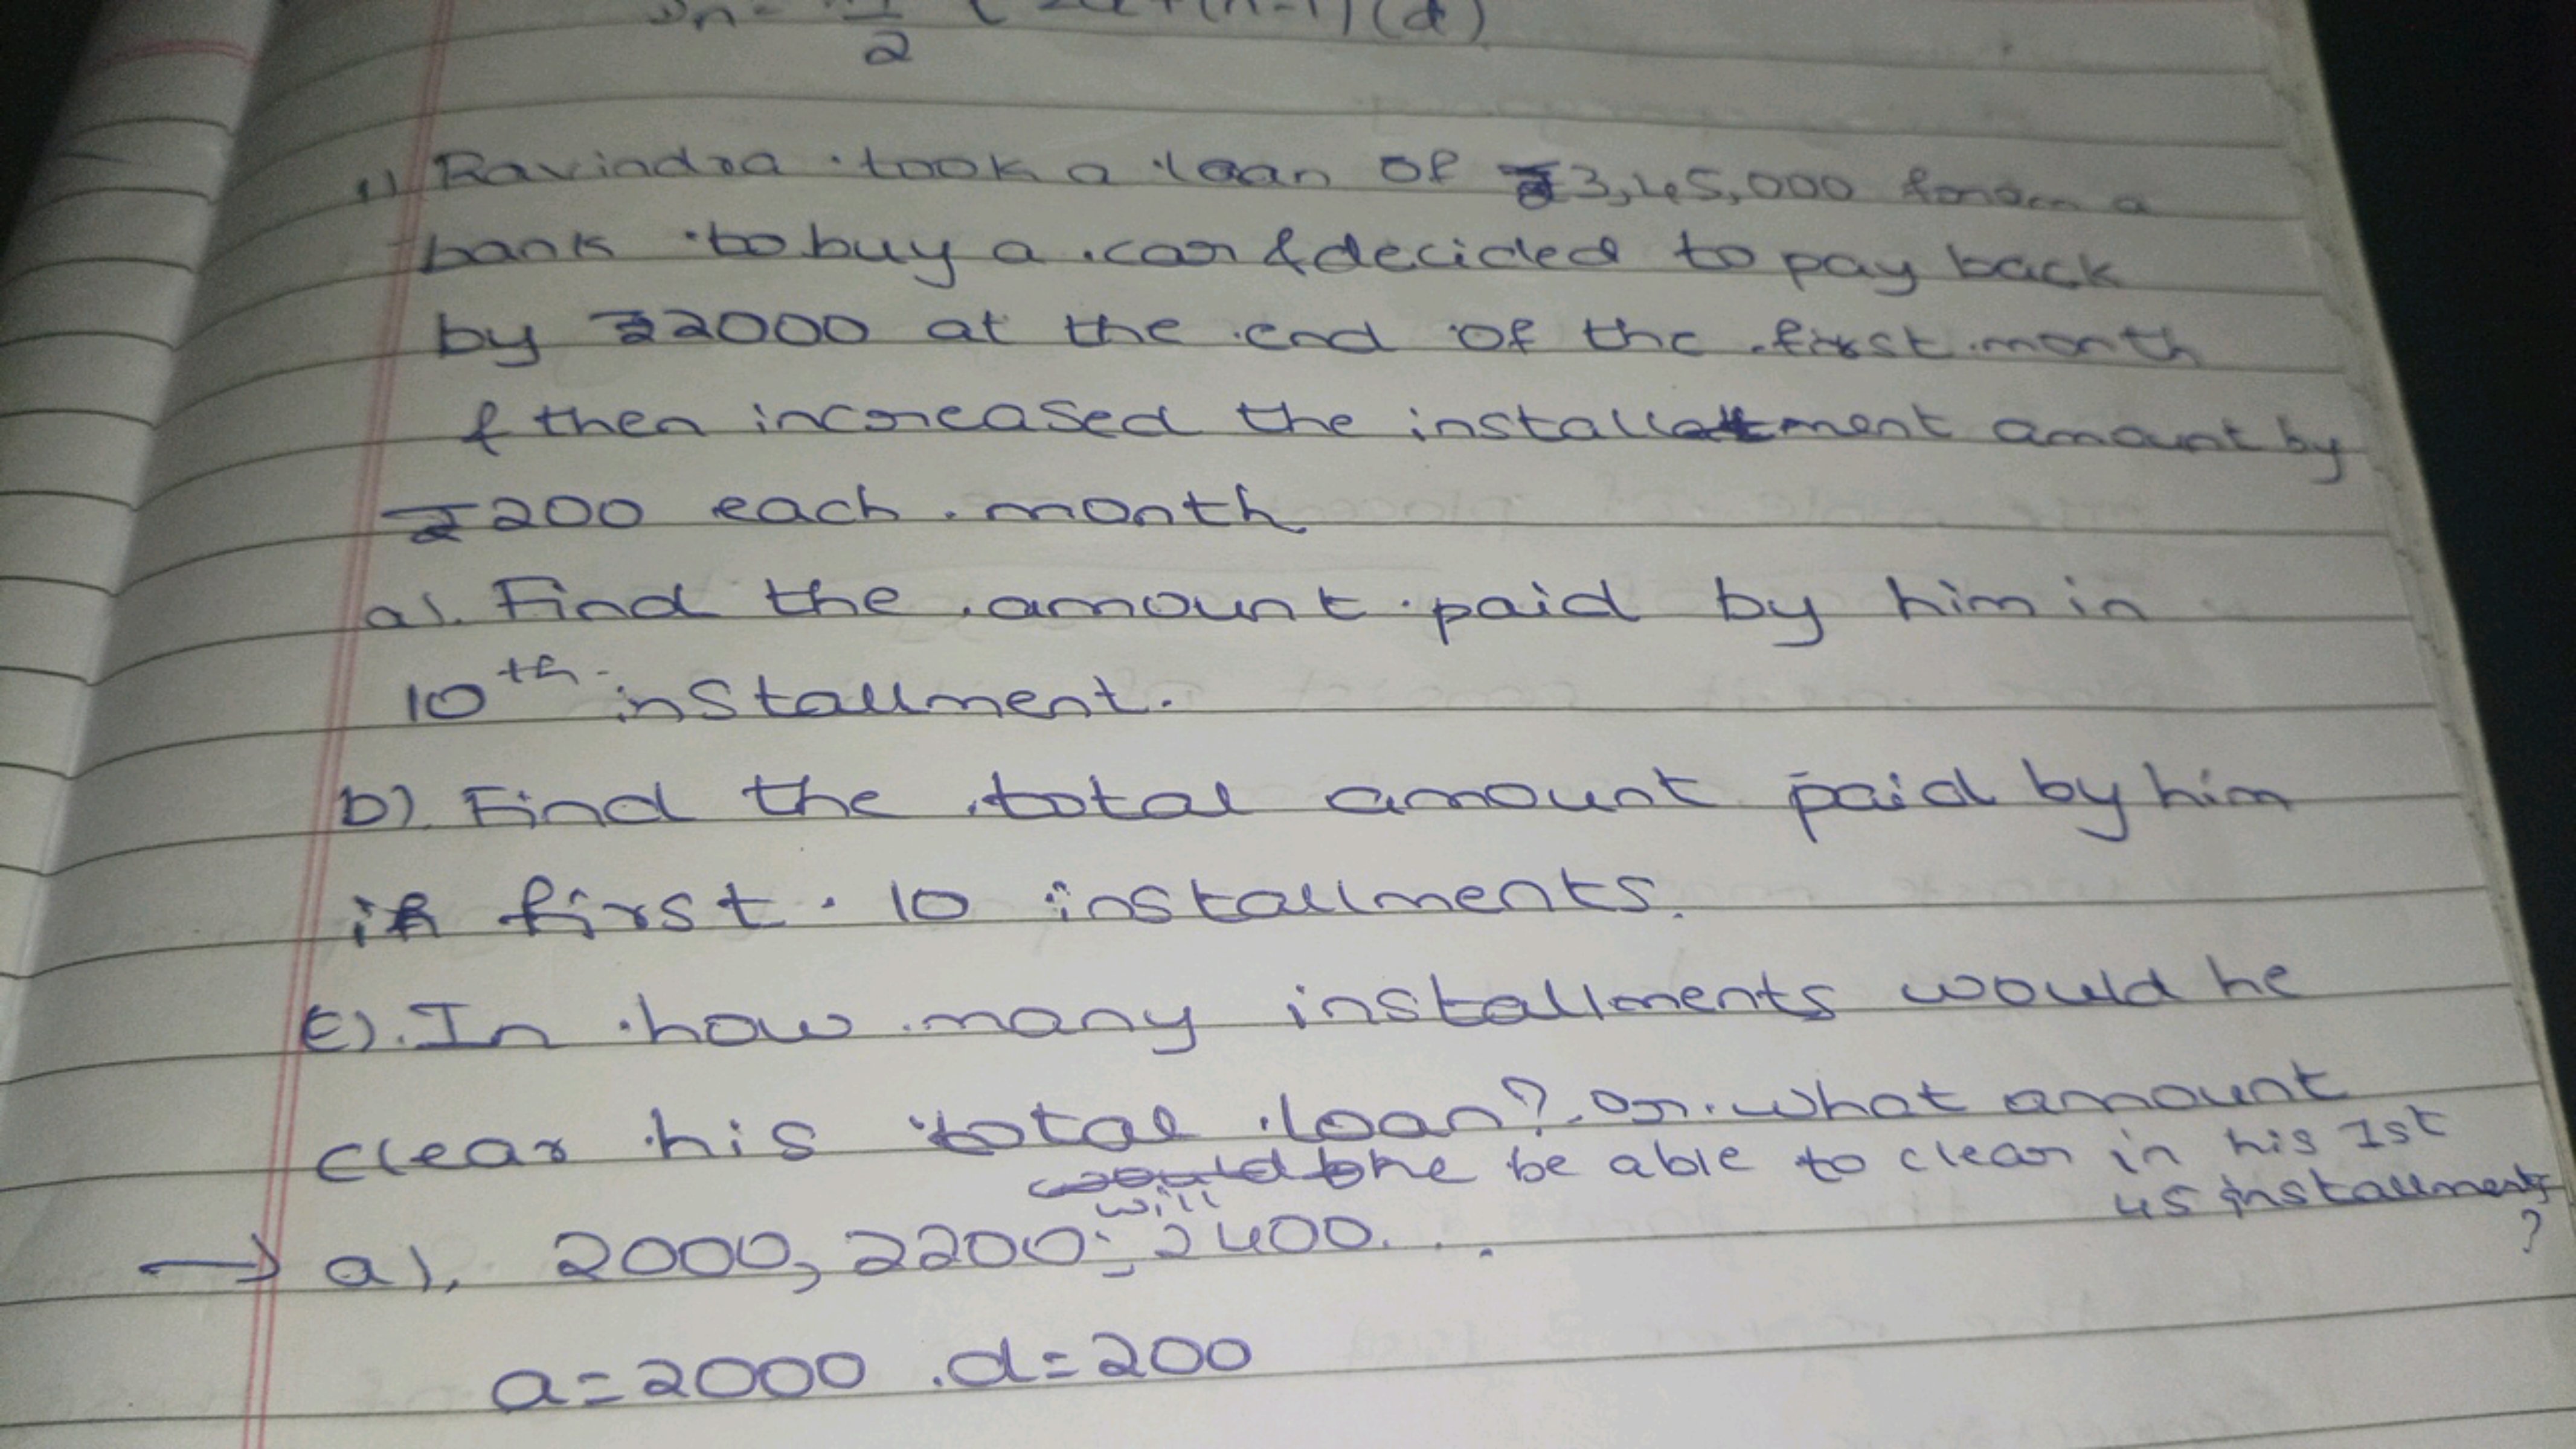 2
(d)
1) Ravindra took a loan of ₹3,45,000 from a
bank to buy a car & decided to pay back
by ₹2000 at the end of the first month
& then increased the installment amount by
₹200 each month
a). Find the amount paid by him in
10th installment.
b). Find the total amount paid by him
in first 10 installments.
c). In how many installments would he
clear his total loan? or what amount
will he be able to clear in his 1st
45 installments
?
→ a). 2000, 2200, 2400...
a=2000 d=200